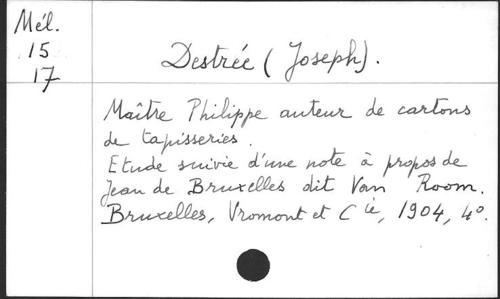 Mél.
15
17
Destrée (Joseph).
Maître Philippe auteur de cartons
de tapisseries.
Etude suivie d'une note à propos de
Jean de Bruxelles dit Van Room.
Bruxelles, Vromont et Cie, 1904, 4o.